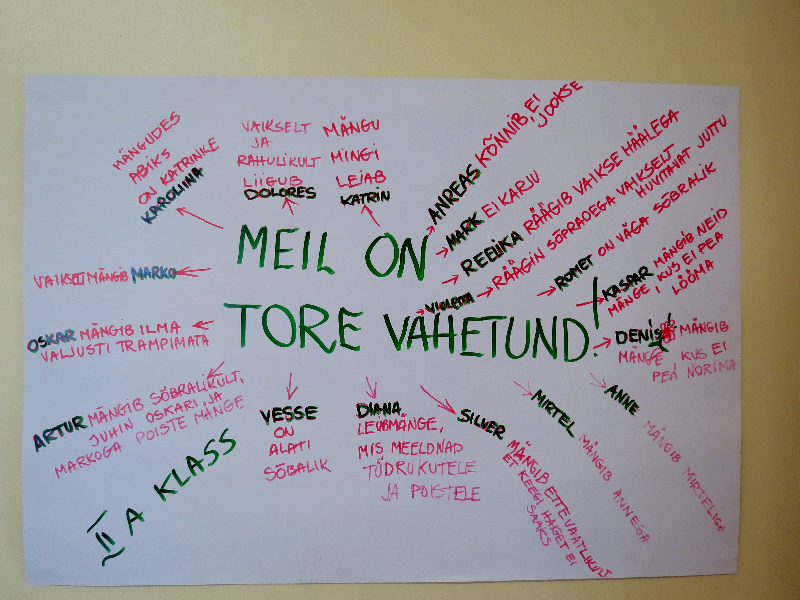 MÄNGUDES
ABIKS
ON KATRINKE
KAROLIINA
VAIKSELT
JA
RAHULIKULT
LIIGUB
DOLORES
MÄNGU
MINGI
LEIAB
KATRIN
ANREAS KÕNNIB EI
JOOKSE
MARK EI KARJU
REELIKA RÄÄGIB VAIKSE HÄÄLEGA
VIOLETTA RÄÄGIN SÕPRADEGA VAIKSELT
HUVITAVAT JUTTU
ROMET ON VÄGA SÕBRALIK
KASPAR MÄNGIB NEID
MÄNGE, KUS EI PEA
LÖÖMA
MEIL ON
TORE VAHETUND!
VAIKSELT MÄNGIB MARKO
OSKAR MÄNGIB ILMA
VALJUSTI TRAMPIMATA
DENIS MÄNGIB
MÄNGE KUS EI
PEA NORIMA
ARTUR MÄNGIB SÕBRALIKULT,
JUHIN OSKARI, JA
MARKOGA POISTE MÄNGE
VESSE
ON
ALATI
SÕBALIK
DIANA
LEIUBMÄNGE,
MIS MEELDNAD
TÜDRUKUTELE
JA POISTELE
SILVER MÄNGIB ETTEVAATLIKULT
ET KEEGI HAIGET EI
SAAKS
MIRTEL MÄNGIB ANNEGA
ANNE MÄNGIB MIRTELIGA
II A KLASS